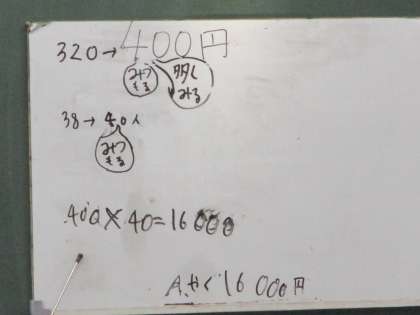 320→400円
みつもる
多く
みる
38→40人
みつ
もる
400×40=16000
A.やく16000円